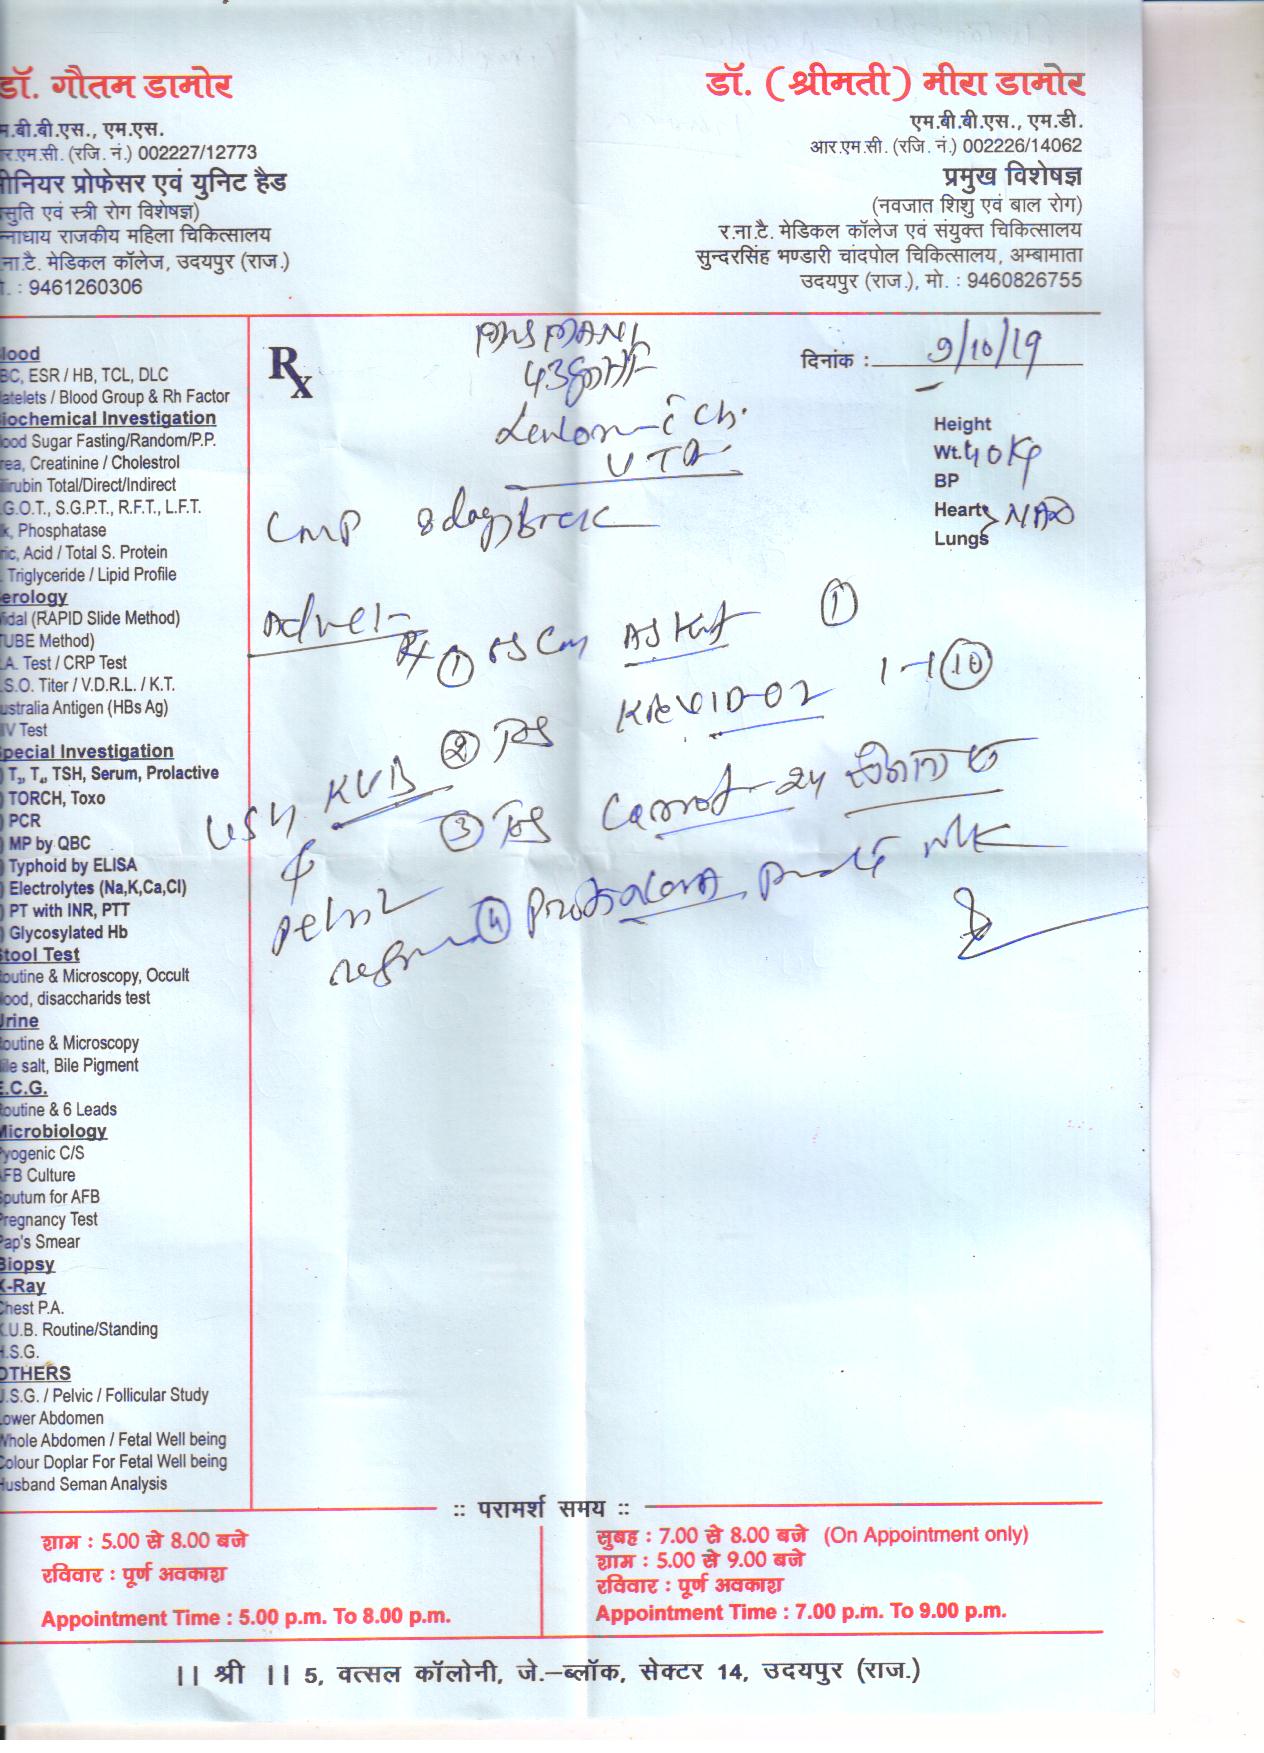 डॉ. गौतम डामोर
म.बी.बी.एस., एम.एस.
आर.एम.सी. (रजि. नं.) 002227/12773
सीनियर प्रोफेसर एवं युनिट हैड
सुति एवं स्त्री रोग विशेषज्ञ)
न्नाधाय राजकीय महिला चिकित्सालय
.ना.टै. मेडिकल कॉलेज, उदयपुर (राज.)
. : 9461260306
डॉ. (श्रीमती) मीरा डामोर
एम.बी.बी.एस., एम.डी.
आर.एम.सी. (रजि. नं.) 002226/14062
प्रमुख विशेषज्ञ
(नवजात शिशु एवं बाल रोग)
र.ना.टै. मेडिकल कॉलेज एवं संयुक्त चिकित्सालय
सुन्दरसिंह भण्डारी चांदपोल चिकित्सालय, अम्बामाता
उदयपुर (राज.), मो. : 9460826755
lood
BC, ESR / HB, TCL, DLC
atelets / Blood Group & Rh Factor
iochemical Investigation
ood Sugar Fasting/Random/P.P.
rea, Creatinine / Cholestrol
lirubin Total/Direct/Indirect
.G.O.T., S.G.P.T., R.F.T., L.F.T.
lk, Phosphatase
ric, Acid / Total S. Protein
. Triglyceride / Lipid Profile
erology
idal (RAPID Slide Method)
TUBE Method)
.A. Test / CRP Test
.S.O. Titer / V.D.R.L. / K.T.
ustralia Antigen (HBs Ag)
IV Test
pecial Investigation
) T3, T4, TSH, Serum, Prolactive
) TORCH, Toxo
) PCR
) MP by QBC
) Typhoid by ELISA
) Electrolytes (Na,K,Ca,Cl)
) PT with INR, PTT
) Glycosylated Hb
Stool Test
outine & Microscopy, Occult
lood, disaccharids test
Urine
outine & Microscopy
ile salt, Bile Pigment
E.C.G.
outine & 6 Leads
Microbiology
yogenic C/S
AFB Culture
Sputum for AFB
Pregnancy Test
Pap's Smear
Biopsy
X-Ray
Chest P.A.
K.U.B. Routine/Standing
H.S.G.
OTHERS
U.S.G. / Pelvic / Follicular Study
Lower Abdomen
Whole Abdomen / Fetal Well being
Colour Doplar For Fetal Well being
Husband Seman Analysis
Rx
दिनांक : 9/10/19
Height
Wt. 40 Kg
BP
Heart NAD
Lungs
UTI
LMP 8 days back
Advel-
Rx ① AS Kit ①
② KEVID-O2 1-1 ⑩
③ 24
USG KUB
④ milk
:: परामर्श समय ::
शाम : 5.00 से 8.00 बजे
रविवार : पूर्ण अवकाश
Appointment Time : 5.00 p.m. To 8.00 p.m.
सुबह : 7.00 से 8.00 बजे (On Appointment only)
शाम : 5.00 से 9.00 बजे
रविवार : पूर्ण अवकाश
Appointment Time : 7.00 p.m. To 9.00 p.m.
|| श्री || 5, वत्सल कॉलोनी, जे.-ब्लॉक, सेक्टर 14, उदयपुर (राज.)